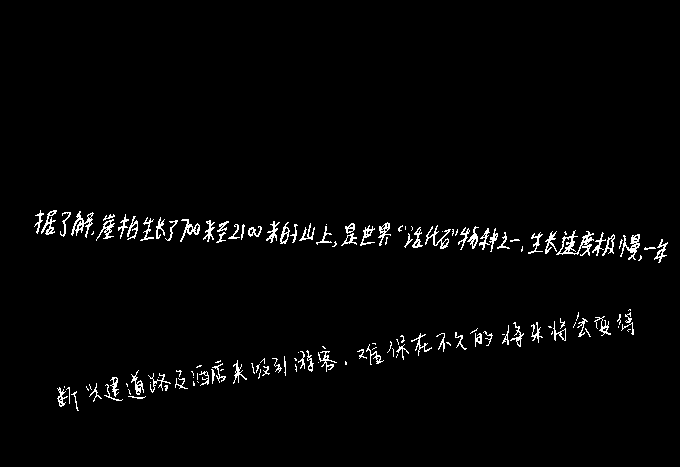 据了解,崖柏生长于700米至2100米的山上,是世界“活化石”物种之一,生长速度极慢,一年
断兴建道路及酒店来吸引游客,难保在不久的将来将会变得